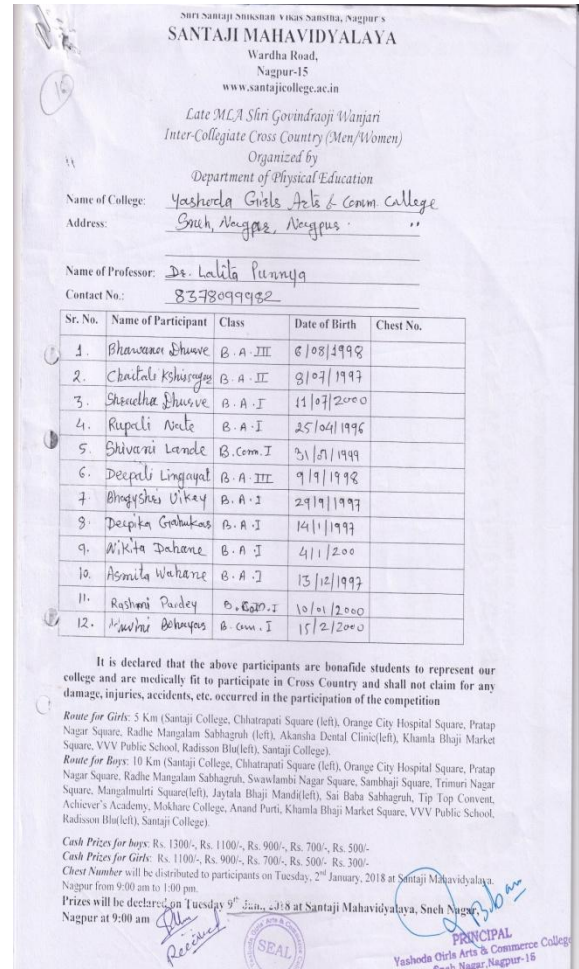 Shri Santaji Shikshan Vikas Sanstha, Nagpur's
SANTAJI MAHAVIDYALAYA
Wardha Road,
Nagpur-15
www.santajicollege.ac.in
16
Late MLA Shri Govindraoji Wanjari
Inter-Collegiate Cross Country (Men/Women)
Organized by
Department of Physical Education
Name of College: Yashoda Girls Arts & Comm. College
Address: Sneh, Nagpur, Nagpur
Name of Professor: Dr. Lalita Punnya
Contact No.: 8378099982
Sr. No. Name of Participant Class Date of Birth Chest No.
1. Bhawana Dhurve B.A-III 6/08/1998
2. Chaitali Kshirsagar B.A-II 8/07/1997
3. Shradha Dhurve B.A.I 11/07/2000
4. Rupali Nate B.A.I 25/04/1996
5. Shivani Lande B.Com.I 31/01/1999
6. Deepali Lingayat B.A.III 9/9/1998
7. Bhagyshri Vikey B.A.I 29/9/1997
8. Deepika Gahukar B.A.I 14/1/1997
9. Nikita Dahane B.A.I 4/1/200
10. Asmita Wahane B.A.I 13/12/1997
11. Rashmi Pardey B.COM.I 10/01/2000
12. Bohayar B.Com.I 15/2/2000
It is declared that the above participants are bonafide students to represent our
college and are medically fit to participate in Cross Country and shall not claim for any
damage, injuries, accidents, etc. occurred in the participation of the competition
Route for Girls: 5 Km (Santaji College, Chhatrapati Square (left), Orange City Hospital Square, Pratap
Nagar Square, Radhe Mangalam Sabhagruh (left), Akansha Dental Clinic(left), Khamla Bhaji Market
Square, VVV Public School, Radisson Blu(left), Santaji College).
Route for Boys: 10 Km (Santaji College, Chhatrapati Square (left), Orange City Hospital Square, Pratap
Nagar Square, Radhe Mangalam Sabhagruh, Swawlambi Nagar Square, Sambhaji Square, Trimuri Nagar
Square, Mangalmulrti Square(left), Jaytala Bhaji Mandi(left), Sai Baba Sabhagruh, Tip Top Convent,
Achiever's Academy, Mokhare College, Anand Purti, Khamla Bhaji Market Square, VVV Public School,
Radisson Blu(left), Santaji College).
Cash Prizes for boys: Rs. 1300/-, Rs. 1100/-, Rs. 900/-, Rs. 700/-, Rs. 500/-
Cash Prizes for Girls: Rs. 1100/-, Rs. 900/-, Rs. 700/-, Rs. 500/- Rs. 300/-
Chest Number will be distributed to participants on Tuesday, 2nd January, 2018 at Santaji Mahavidyalaya,
Nagpur from 9:00 am to 1:00 pm.
Prizes will be declared on Tuesday 9th Jan., 2018 at Santaji Mahavidyalaya, Sneh Nagar,
Nagpur at 9:00 am
Received
SEAL
PRINCIPAL
Yashoda Girls Arts & Commerce College
Sneh Nagar, Nagpur-15